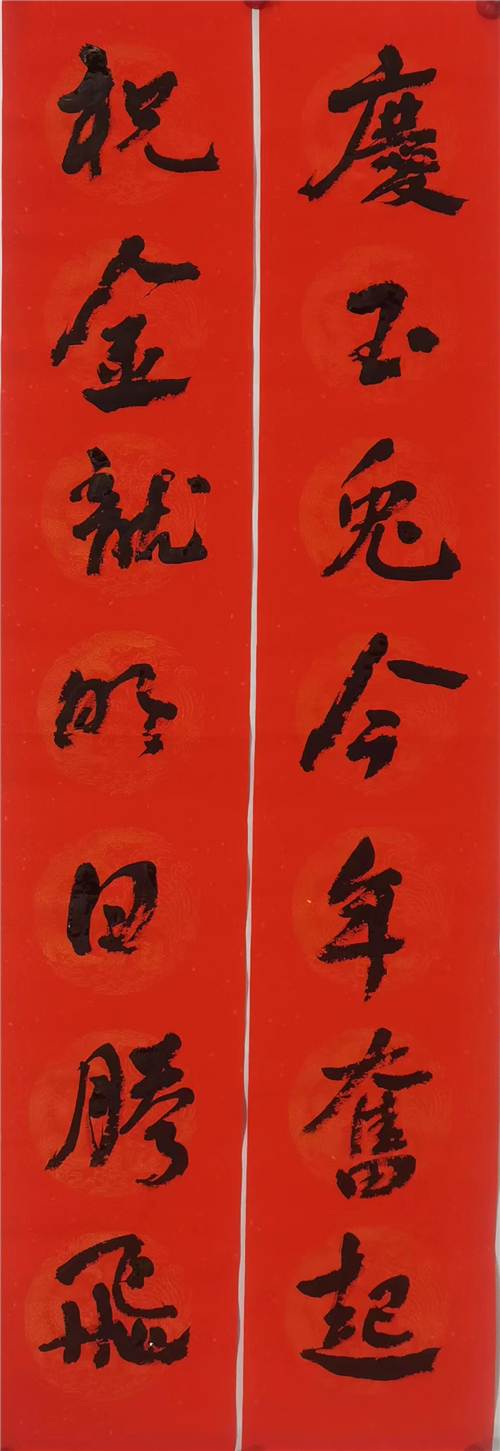 慶玉兔今年奮起
祝金龍明日騰飛